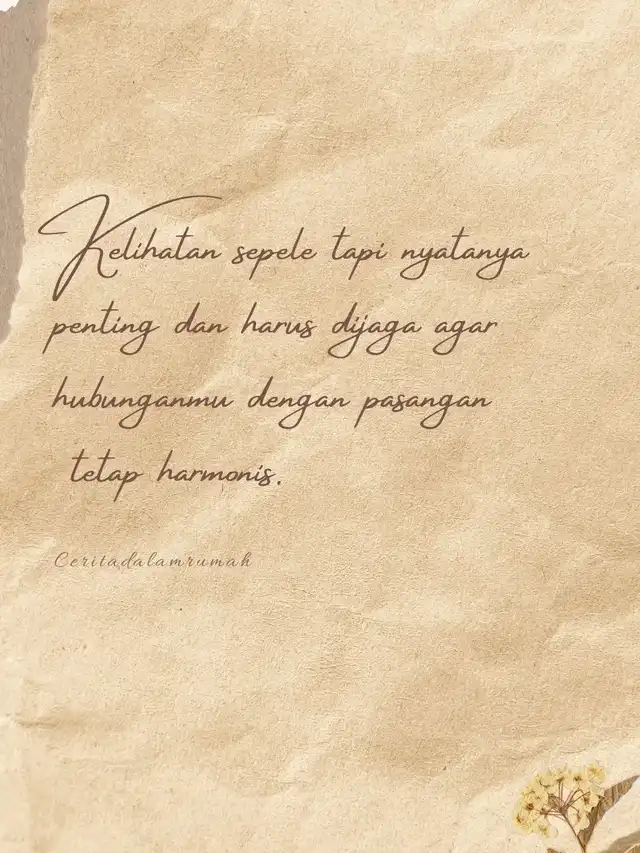 Kelihatan sepele tapi nyatanya
penting dan harus dijaga agar
hubunganmu dengan pasangan
tetap harmonis.
Ceritadalamrumah